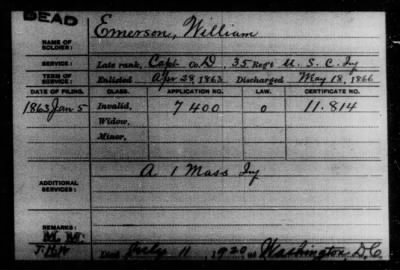 DEAD
NAME OF SOLDIER: Emerson, William
SERVICE: Late rank, Capt Co. D, 35 Reg't U. S. C. Iy
TERM OF SERVICE: Enlisted Apr 28, 1863 Discharged May 18, 1866
DATE OF FILING. CLASS. APPLICATION NO. LAW. CERTIFICATE NO.
1863 Jan 5 Invalid, 7400 0 11.814
Widow,
Minor,
ADDITIONAL SERVICES: A 1 Mass Iy
REMARKS:
Died July 11, 1920, at Washington D.C.